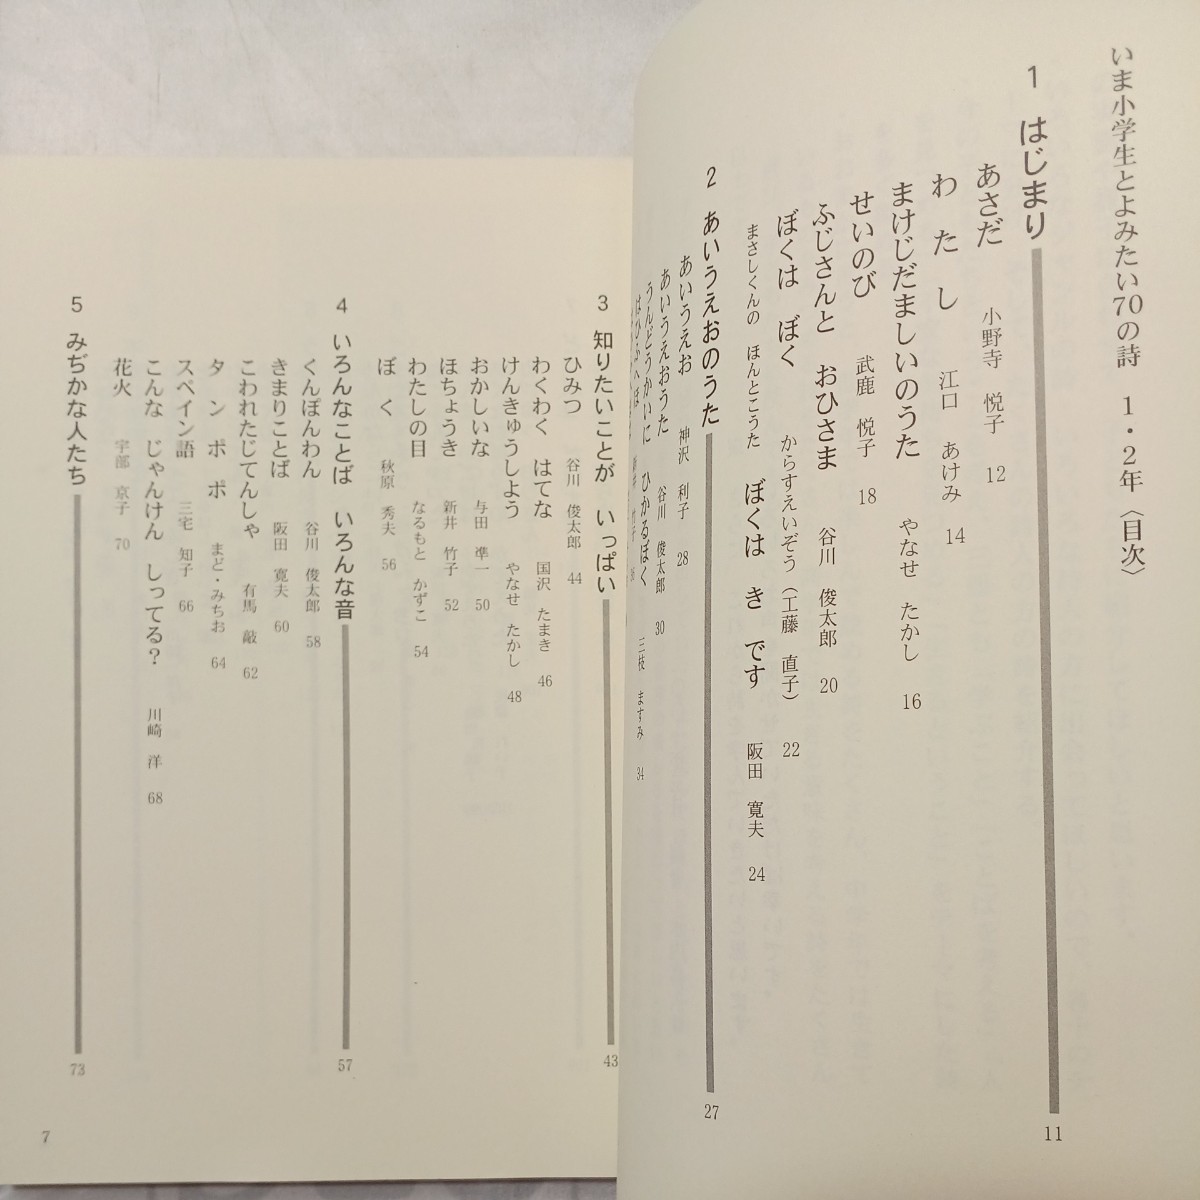 いま小学生とよみたい70の詩 1・2年〈目次〉
1 はじまり 11
あさだ 小野寺 悦子 12
わたし 江口 あけみ 14
まけじだましいのうた やなせ たかし 16
せいのび 武鹿 悦子 18
ふじさんと おひさま 谷川 俊太郎 20
ぼくは ぼく からすえいぞう(工藤 直子) 22
まさしくんの ほんとこうた ぼくは きです 阪田 寛夫 24
2 あいうえおのうた 27
あいうえお 神沢 利子 28
あいうえおうた 谷川 俊太郎 30
うんどうかいに ひかるぼく 三枝 ますみ 34
はひふへほ
3 知りたいことが いっぱい 43
ひみつ 谷川 俊太郎 44
わくわく はてな 国沢 たまき 46
けんきゅうしよう やなせ たかし 48
おかしいな 与田 凖一 50
ほちょうき 新井 竹子 52
わたしの目 なるもと かずこ 54
ぼく 秋原 秀夫 56
4 いろんなことば いろんな音 57
くんぽんわん 谷川 俊太郎 58
きまりことば 阪田 寛夫 60
こわれたじてんしゃ 有馬 敲 62
タンポポ まど・みちお 64
スペイン語 三宅 知子 66
こんな じゃんけん しってる? 川崎 洋 68
花火 宇部 京子 70
5 みぢかな人たち 73
7